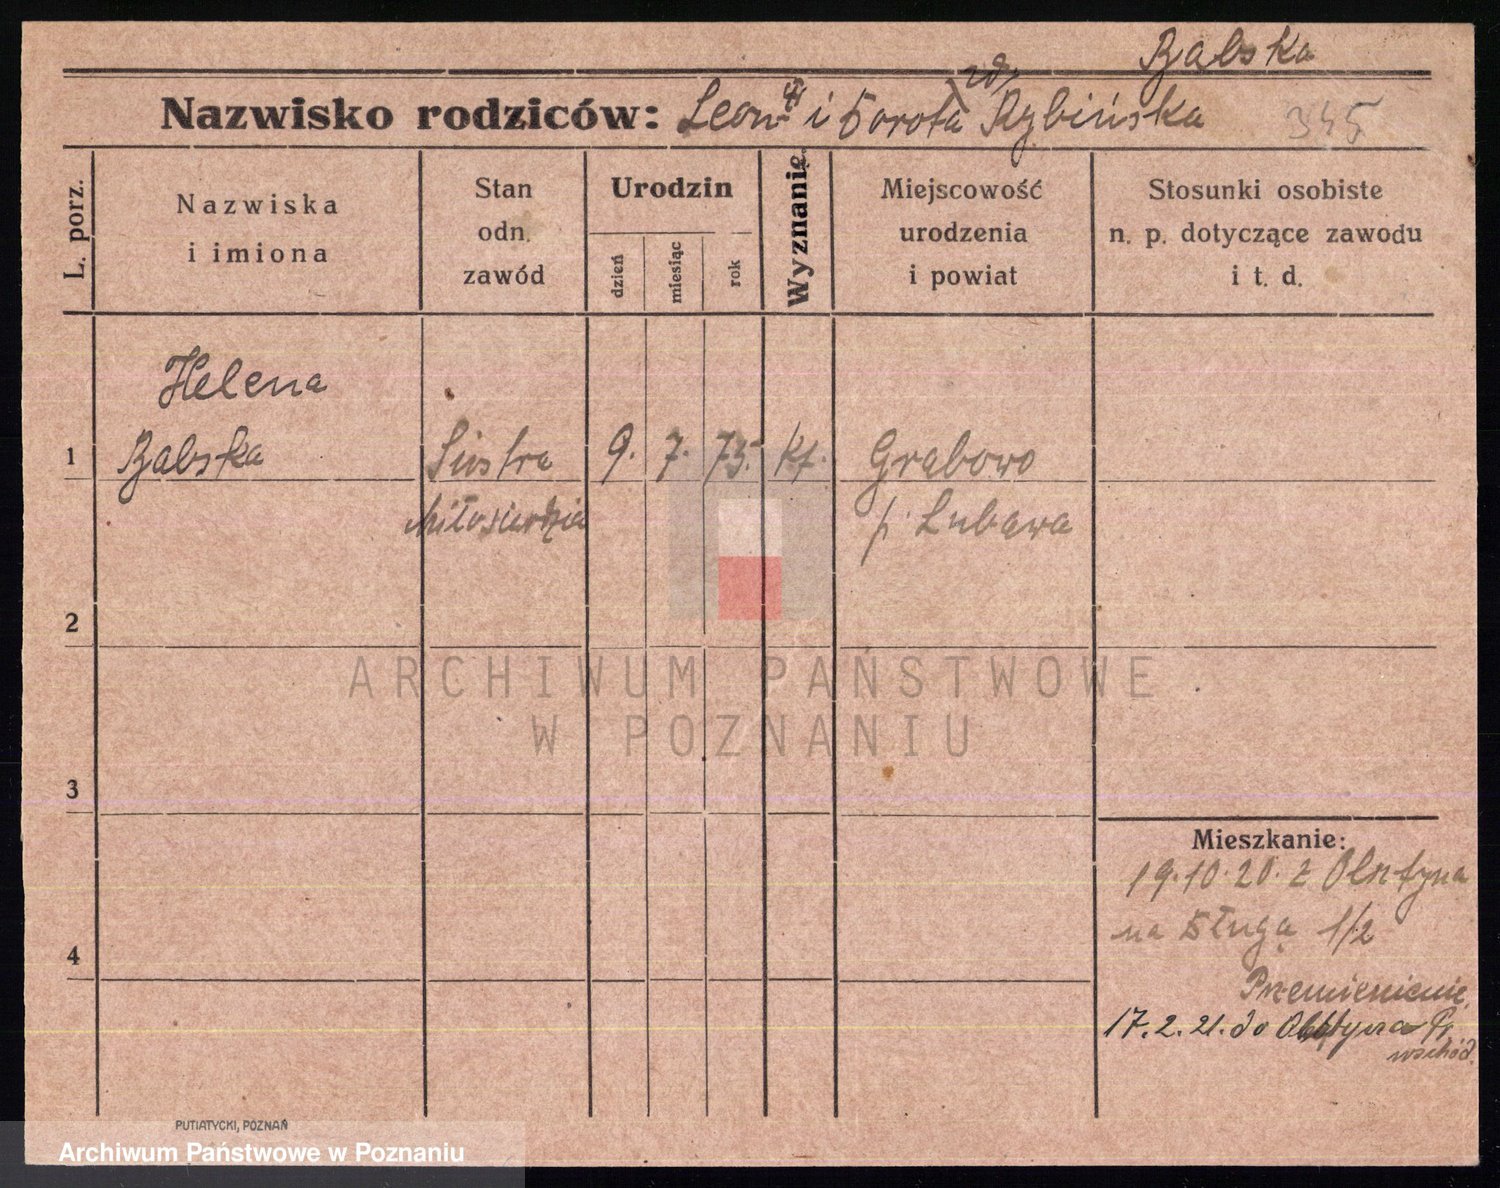 Bąbska
Nazwisko rodziców: Leon i Dorota zd. Rybińska 345
L. porz.
Nazwiska
i imiona
Stan
odn.
zawód
Urodzin
dzień
miesiąc
rok
Wyznanie
Miejscowość
urodzenia
i powiat
Stosunki osobiste
n. p. dotyczące zawodu
i t. d.
Helena
1 Bąbska Siostra 9. 7. 75. kt. Grabowo
Miłosierdzia p. Lubawa
2
ARCHIWUM PAŃSTWOWE
W POZNANIU
3
Mieszkanie:
19.10.20. z Olsztyna
na Długą 1/2
4
Przemienienie,
17.2.21. do Olsztyna Pr.
wschód.
PUTIATYCKI, POZNAŃ
Archiwum Państwowe w Poznaniu